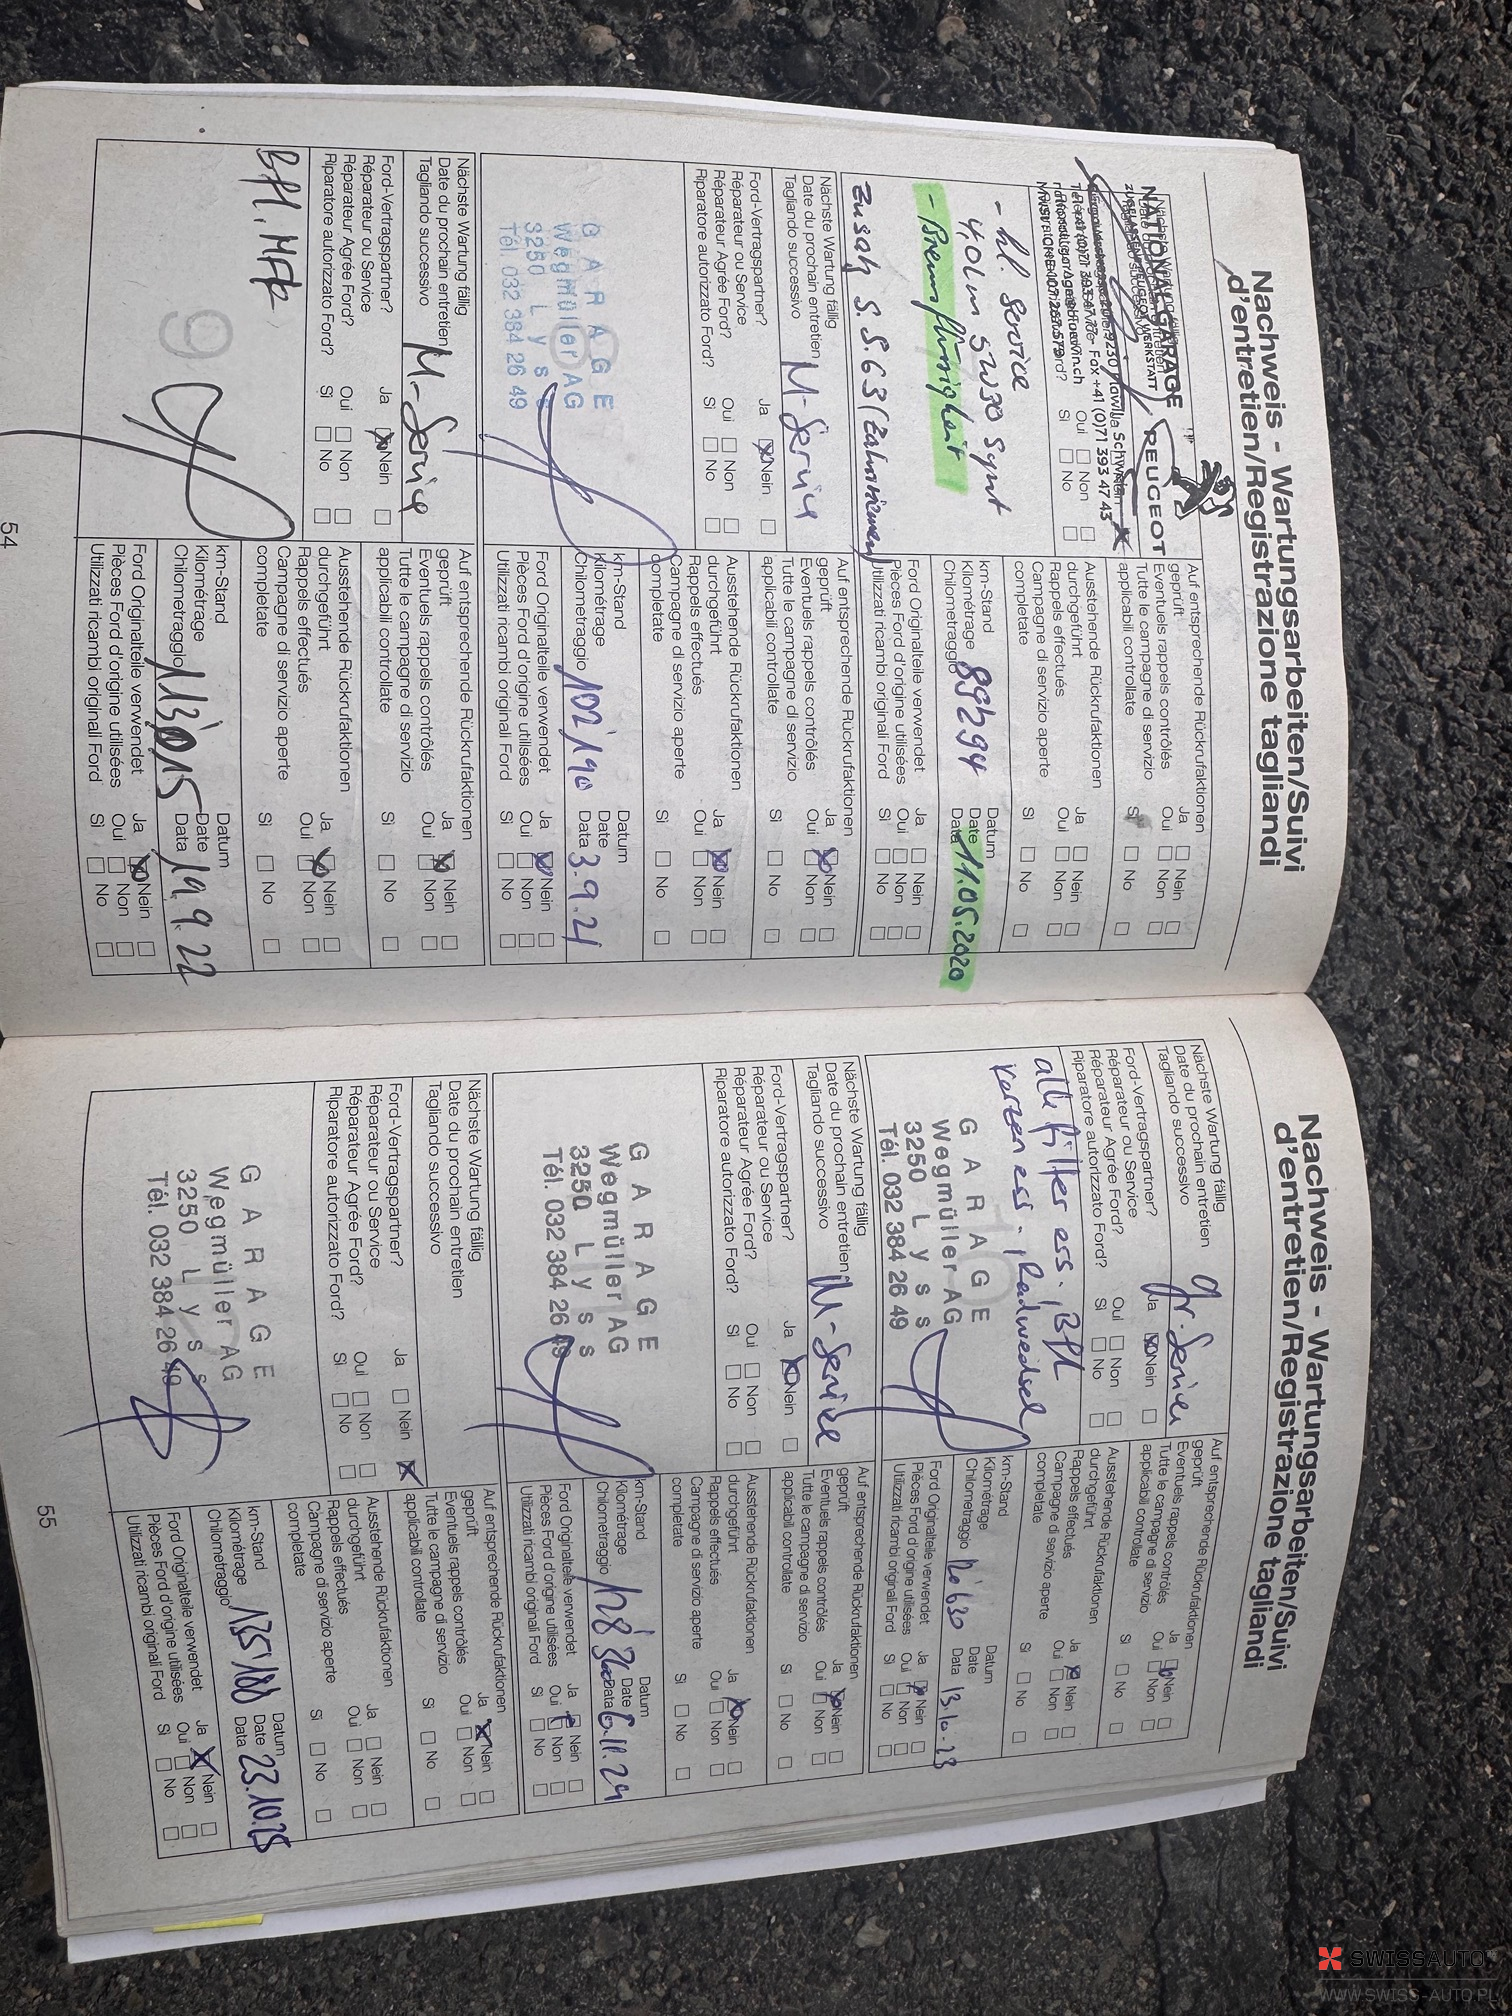 Nachweis - Wartungsarbeiten/Suivi
d'entretien/Registrazione tagliandi
NATIONALGARAGE
PEUGEOT
Fax +41 (0)71 393 47 43
Auf entsprechende Rückrufaktionen
geprüft Ja Nein
Eventuels rappels contrôlés Oui Non
Tutte le campagne di servizio
applicabili controllate Sì No
Ausstehende Rückrufaktionen
durchgeführt Ja Nein
Rappels effectués Oui Non
Campagne di servizio aperte
completate Sì No
- kl. Service
4,0L m 5W30 Synt
- Bremsflüssigkeit
Zusatz S. S. 63 (Zahnriemen)
km-Stand Datum
Kilométrage Date
Chilometraggio 89'294 Data 11.05.2020
Ford Originalteile verwendet Ja Nein
Pièces Ford d'origine utilisées Oui Non
Utilizzati ricambi originali Ford Sì No
Nächste Wartung fällig
Date du prochain entretien
Tagliando successivo M-Service
Ford-Vertragspartner? Ja Nein
Réparateur ou Service
Réparateur Agrée Ford? Oui Non
Riparatore autorizzato Ford? Sì No
GARAGE
Wegmüller AG
3250 Lyss
Tél. 032 384 26 49
Auf entsprechende Rückrufaktionen
geprüft Ja Nein
Eventuels rappels contrôlés Oui Non
Tutte le campagne di servizio
applicabili controllate Sì No
Ausstehende Rückrufaktionen
durchgeführt Ja Nein
Rappels effectués Oui Non
Campagne di servizio aperte
completate Sì No
km-Stand Datum
Kilométrage Date
Chilometraggio 102'190 Data 3.9.21
Ford Originalteile verwendet Ja Nein
Pièces Ford d'origine utilisées Oui Non
Utilizzati ricambi originali Ford Sì No
Nächste Wartung fällig
Date du prochain entretien
Tagliando successivo M-Service
Ford-Vertragspartner? Ja Nein
Réparateur ou Service
Réparateur Agrée Ford? Oui Non
Riparatore autorizzato Ford? Sì No
9
Auf entsprechende Rückrufaktionen
geprüft Ja Nein
Eventuels rappels contrôlés Oui Non
Tutte le campagne di servizio
applicabili controllate Sì No
Ausstehende Rückrufaktionen
durchgeführt Ja Nein
Rappels effectués Oui Non
Campagne di servizio aperte
completate Sì No
km-Stand Datum
Kilométrage Date
Chilometraggio 113'015 Data 19.9.22
Ford Originalteile verwendet Ja Nein
Pièces Ford d'origine utilisées Oui Non
Utilizzati ricambi originali Ford Sì No
54
Nachweis - Wartungsarbeiten/Suivi
d'entretien/Registrazione tagliandi
Nächste Wartung fällig
Date du prochain entretien
Tagliando successivo gr. Service
Ford-Vertragspartner? Ja Nein
Réparateur ou Service
Réparateur Agrée Ford? Oui Non
Riparatore autorizzato Ford? Sì No
alle filter ers.
Kerzen ers., Radwechsel
GARAGE
Wegmüller AG
3250 Lyss
Tél. 032 384 26 49
Auf entsprechende Rückrufaktionen
geprüft Ja Nein
Eventuels rappels contrôlés Oui Non
Tutte le campagne di servizio
applicabili controllate Sì No
Ausstehende Rückrufaktionen
durchgeführt Ja Nein
Rappels effectués Oui Non
Campagne di servizio aperte
completate Sì No
km-Stand Datum
Kilométrage Date
Chilometraggio Data 13.10.23
Ford Originalteile verwendet Ja Nein
Pièces Ford d'origine utilisées Oui Non
Utilizzati ricambi originali Ford Sì No
Nächste Wartung fällig
Date du prochain entretien
Tagliando successivo M-Service
Ford-Vertragspartner? Ja Nein
Réparateur ou Service
Réparateur Agrée Ford? Oui Non
Riparatore autorizzato Ford? Sì No
GARAGE
Wegmüller AG
3250 Lyss
Tél. 032 384 26 49
Auf entsprechende Rückrufaktionen
geprüft Ja Nein
Eventuels rappels contrôlés Oui Non
Tutte le campagne di servizio
applicabili controllate Sì No
Ausstehende Rückrufaktionen
durchgeführt Ja Nein
Rappels effectués Oui Non
Campagne di servizio aperte
completate Sì No
km-Stand Datum
Kilométrage Date
Chilometraggio Data 6.11.24
Ford Originalteile verwendet Ja Nein
Pièces Ford d'origine utilisées Oui Non
Utilizzati ricambi originali Ford Sì No
Nächste Wartung fällig
Date du prochain entretien
Tagliando successivo
Ford-Vertragspartner? Ja Nein
Réparateur ou Service
Réparateur Agrée Ford? Oui Non
Riparatore autorizzato Ford? Sì No
GARAGE
Wegmüller AG
3250 Lyss
Tél. 032 384 26 49
Auf entsprechende Rückrufaktionen
geprüft Ja Nein
Eventuels rappels contrôlés Oui Non
Tutte le campagne di servizio
applicabili controllate Sì No
Ausstehende Rückrufaktionen
durchgeführt Ja Nein
Rappels effectués Oui Non
Campagne di servizio aperte
completate Sì No
km-Stand Datum
Kilométrage Date
Chilometraggio 135'188 Data 23.10.25
Ford Originalteile verwendet Ja Nein
Pièces Ford d'origine utilisées Oui Non
Utilizzati ricambi originali Ford Sì No
55
SWISSAUTO
WWW.SWISS-AUTO.PL